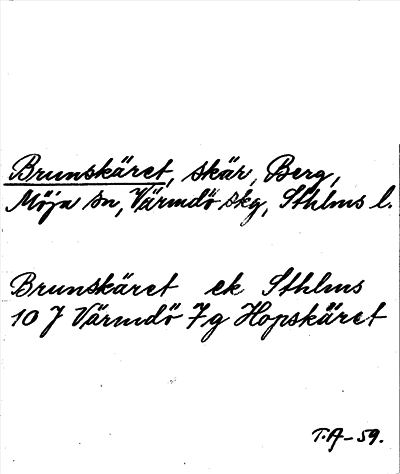 Brunskäret, skär, Berg,
Möja sn, Värmdö skg, Sthlms l.
Brunskäret ek Sthlms
10 J Värmdö 7g Hopskäret
T.A-59.